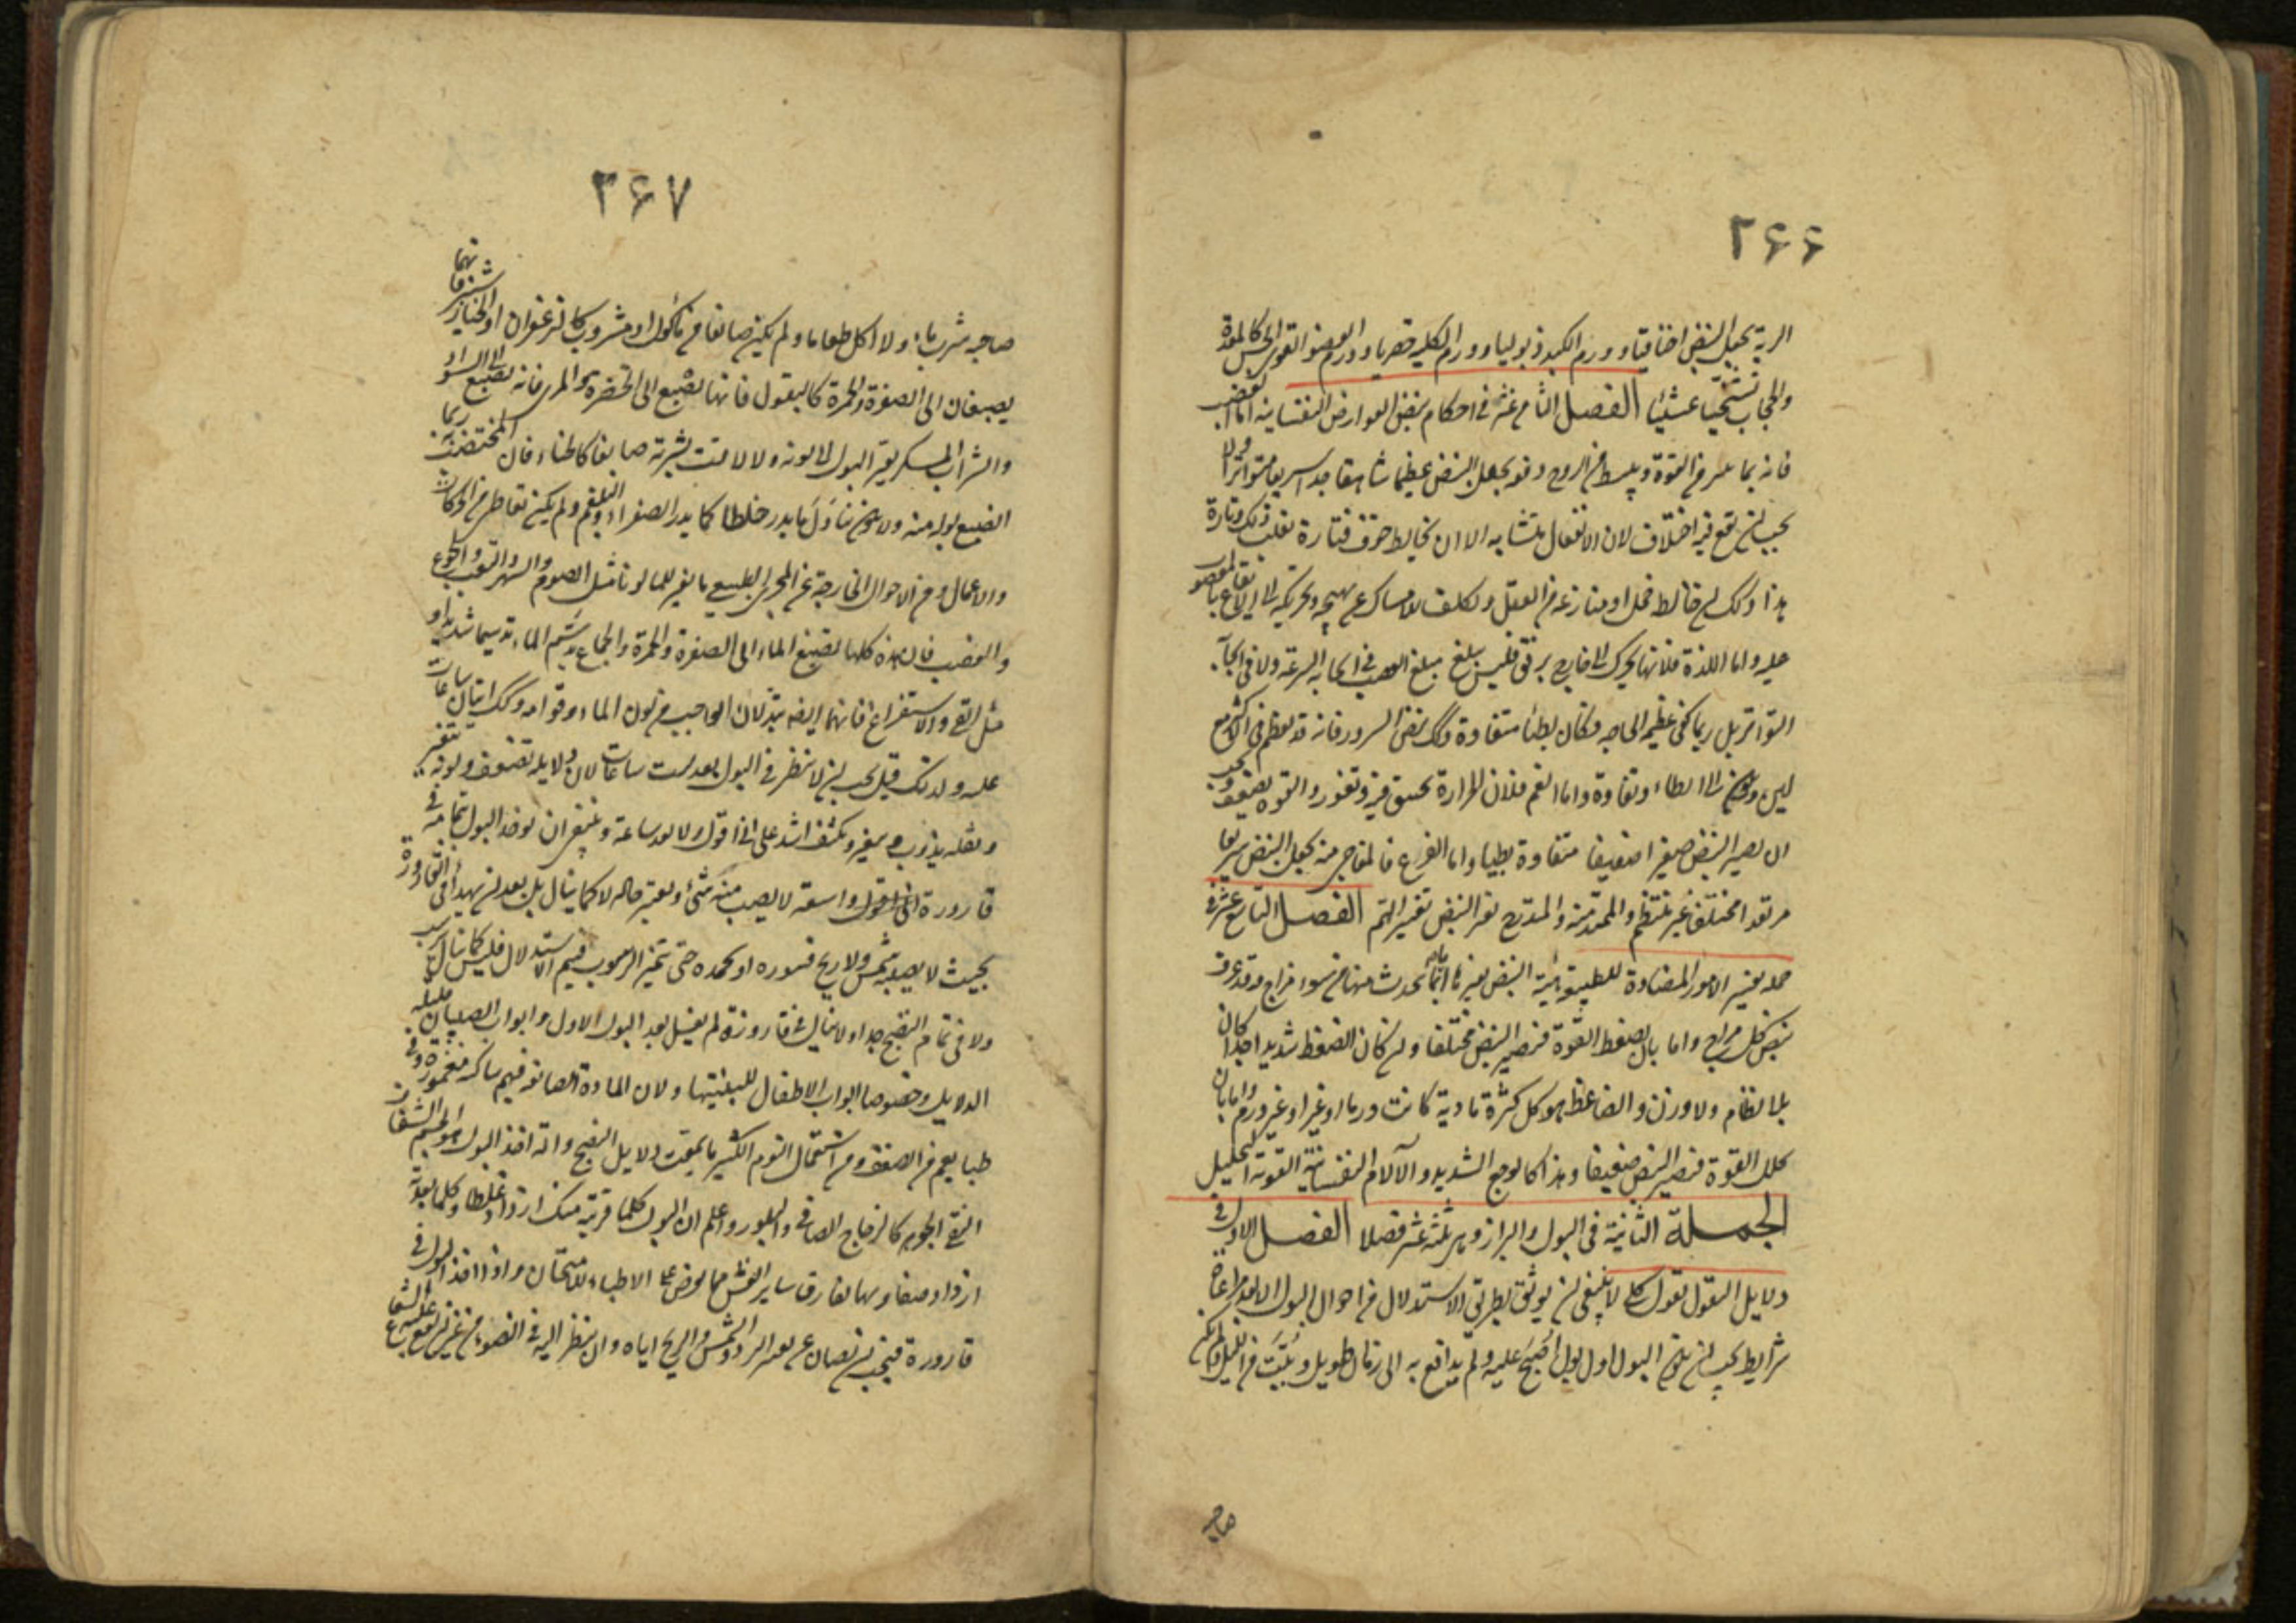 ٢۶۶
الرية يجعل النبض اختناقيا وورم الكبد ذبوليا وورم الكلية حصريا وورم العضو القوى الحس كالمعدة
والحجاب تشنجيا غشييا الفصل الثامن عشر فى احكام نبض العوارض النفسانية اما الغضب
فانه بما يثير من القوة ويبسط من الروح دفعة يجعل النبض عظيما شاهقا جدا سريعا متواترا ولا
يجب ان يقع فيه اختلاف لان الانفعال متشابه الا ان يخالط خوف فتارة يغلب ذلك وتارة
هذا وكذلك ان خالط خجل او منازعة من العقل وتكلف الامساك عن تهييجه وتحريكه الى الايقاع بالمغضوب
عليه واما اللذة فلانها تحرك الى خارج برفق فليس تبلغ مبلغ الغضب فى ايجابه السرعة ولا فى ايجابه
التواتر بل ربما كفى عظمه الحاجة فكان بطيئا متفاوتا وكذلك نبض السرور فانه قد يعظم فى الاكثر مع
لين ويكون الى ابطاء وتفاوت واما الغم فلان الحرارة تختنق فيه وتغور والقوة تضعف ويجب
ان يصير النبض صغيرا ضعيفا متفاوتا بطيئا واما الفزع فالمفاجى منه يجعل النبض سريعا
مرتعدا مختلفا غير منتظم والممتد منه والمتدرج يغير النبض تغيير الهم الفصل التاسع عشر فى
جملة تغيير الامور المضادة للطبيعة هيئة النبض تغييرها اما بما يحدث منها من سوء مزاج وقد عرف
نبض كل مزاج واما بان يضغط القوة فيصير النبض مختلفا وان كان الضغط شديدا جدا كان
بلا نظام ولا وزن والضاغط هو كل كثرة مادية كانت ورما او غير ورم واما بان
يحلل القوة فيصير النبض ضعيفا وهذا كالوجع الشديد والآلام النفسانية القوية التحليل
الجملة الثانية فى البول والبراز وهى ثلثة عشر فصلا الفصل الاول فى
دلايل البول بقول كلى لا ينبغى ان يوثق بطرق الاستدلال من احوال البول الا بعد مراعاة
شرايط يجب ان يكون البول اول بول اصبح عليه ولم يدافع به الى زمان طويل ويثبت من الليل ولم يكن
صاحبه
٢۶٧
صاحبه شرب ماء ولا اكل طعاما ولم يكن صابغا من مأكول او مشروب كالزعفران او الخيار شنبر فانهما
يصبغان الى الصفرة والحمرة كالبقول فانها تصبغ الى الخضرة والمرى فانه يصبغ الى السواد
والشراب المسكر يغير البول الى لونه ولا لاقت بشرته صابغا كالحناء فان المختضب به ربما
انصبغ بوله منه ولا يكون تناول ما يدر خلطا كما يدر الصفراء والبلغم ولم يكن تعاطى من الحركات
والاعمال ومن الاحوال الخارجة عن المجرى الطبيعى ما يغير الماء لونا مثل الصوم والسهر والتعب والجوع
والغضب فان هذه كلها تصبغ الماء الى الصفرة والحمرة والجماع يدسم الماء تدسيما شديدا و
مثل القىء والاستفراغ فانهما ايضا يبدلان الواجب من لون الماء وقوامه وكذلك اتيان ساعات
عليه ولذلك قيل يجب ان لا ينظر فى البول بعد ست ساعات لان دلايله تضعف ولونه يتغير
وثفله يذوب ويتغير او يكثف اشد على انى اقول ولا بعد ساعة وينبغى ان يؤخذ البول بتمامه فى
قارورة واسعة لا يصب منه شىء ويعتبر حاله لا كما يبال بل بعد ان يهدأ فى القارورة
بحيث لا يصيبه شمس ولا ريح فيثوره او يجمده حتى يتميز الرسوب ويتم الاستدلال فليس كما يبال يرسب
ولا فى تمام النضج جدا ولا يبال فى قارورة لم يغسل بعد البول الاول وابوال الصبيان قليلة
الدلايل وخصوصا ابوال الاطفال للبنيتها ولان المادة الصابغة فيهم ساكنة مغمورة وفى
طبايعهم من الضعف ومن استعمال النوم الكثير ما يميت دلايل النضج وآلة اخذ البول هو الجسم الشفاف
النقى الجوهر كالزجاج الصافى والبلور واعلم ان البول كلما قربته منك ازداد غلظا وكلما بعدته
ازداد صفاء وبها يفارق ساير الغش مما يعرض على الاطباء للامتحان واذا اخذ البول فى
قارورة فيجب ان يصان عن تغيير البرد والشمس والريح اياه وان ينظر اليه فى الضوء من غير ان يقع عليه الشعاع